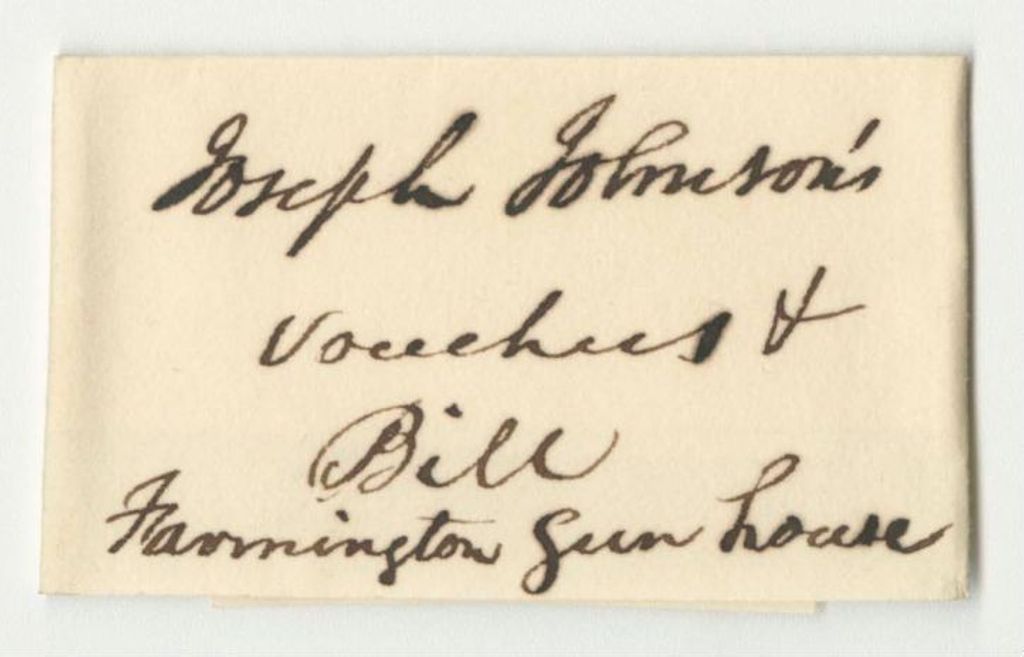 Joseph Johnson's
Vouchers &
Bill
Farmington Gun house